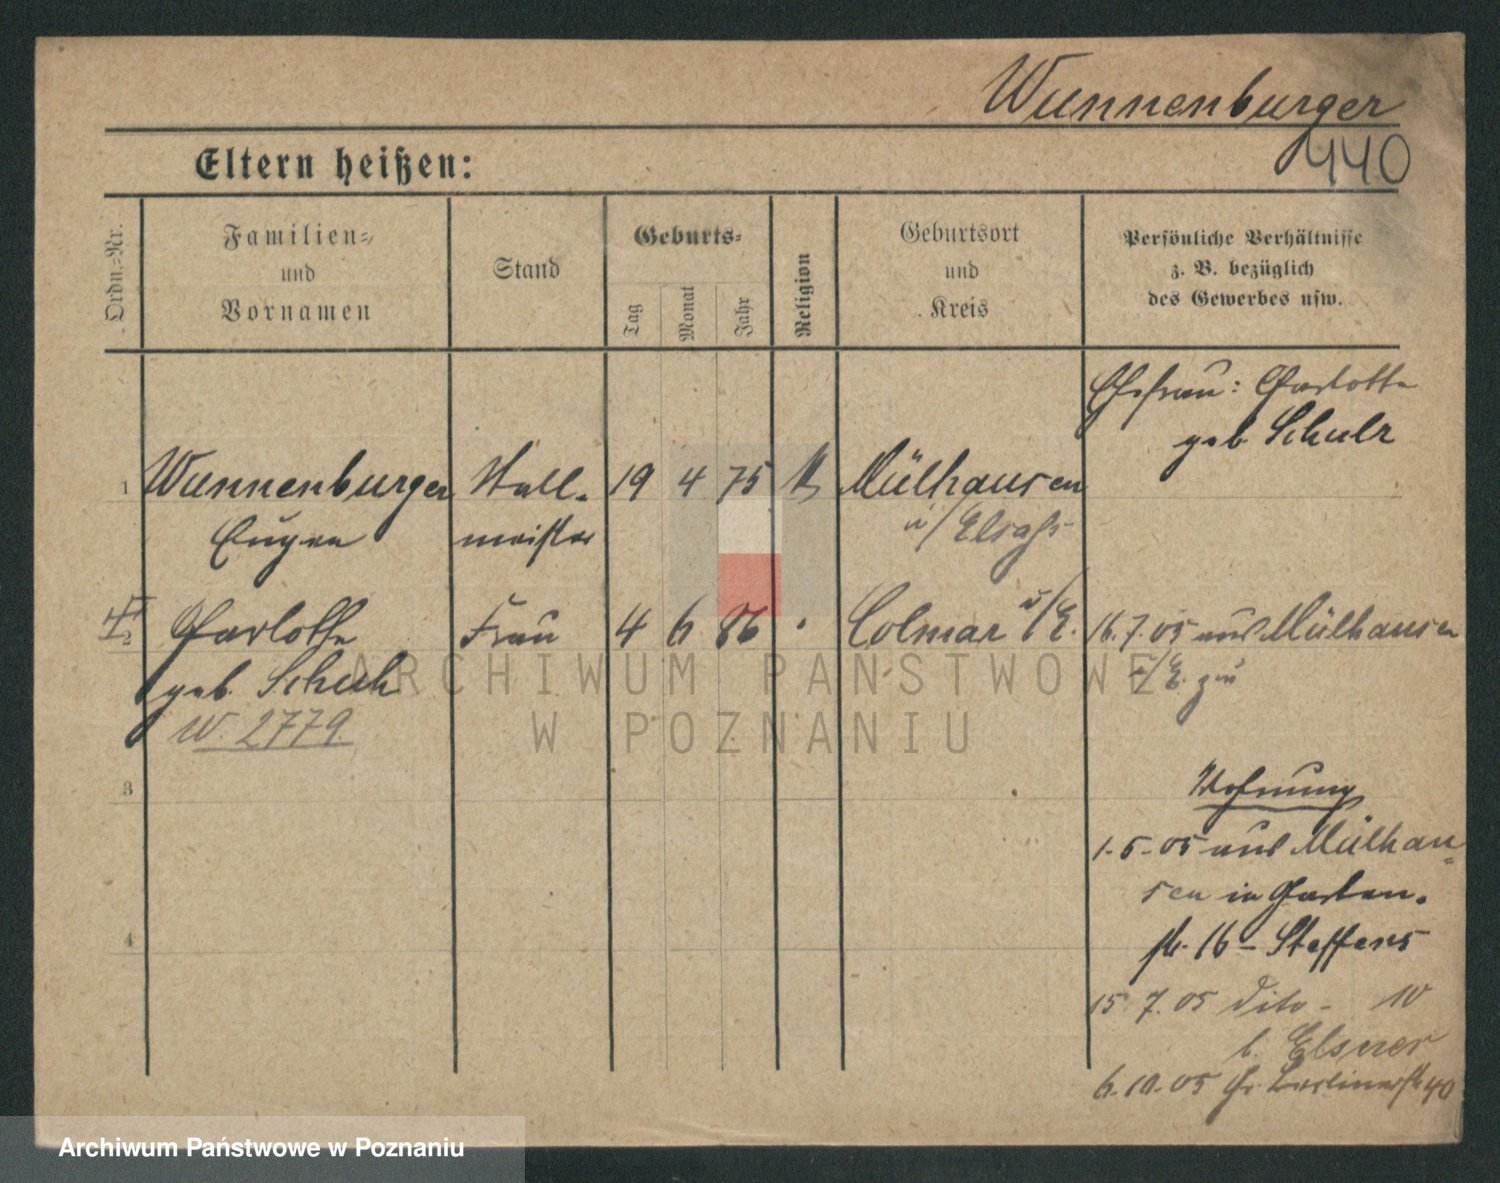 Wunnenburger
440
Eltern heißen:
Ordn.-Nr.
Familien-
und
Vornamen
Stand
Geburts-
Tag
Monat
Jahr
Religion
Geburtsort
und
Kreis
Persönliche Verhältnisse
z. B. bezüglich
des Gewerbes usw.
Ehefrau: Charlotte
geb. Schulz
1 Wunnenburger Stall- 19 4 75 Mülhausen
Eugen meister i/Elsaß
2 Charlotte Frau 4 6 86 Colmar i/E. 16.7.05 aus Mülhausen
geb. Schuh i/E. zu
W. 2779.
3
Wohnung
1.5.05 aus Mülhau-
sen in Garten-
str. 16 - Steffens
4
15 7.05 dito - 10
b. Elsner
6.10.05 Gr. Berlinerstr 40
ARCHIWUM PAŃSTWOWE
W POZNANIU
Archiwum Państwowe w Poznaniu